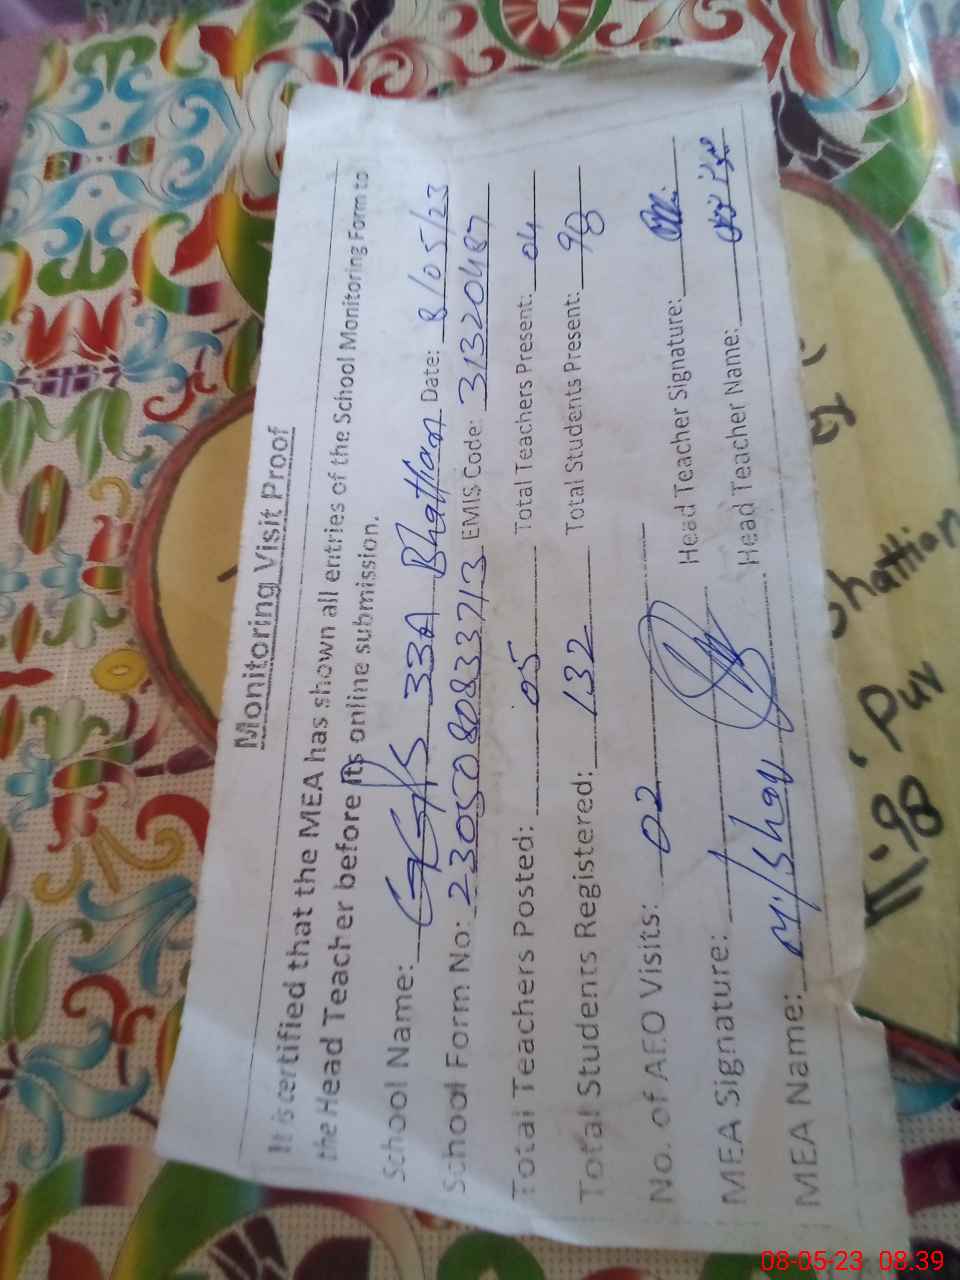 Monitoring Visit Proof
It is certified that the MEA has shown all entries of the School Monitoring Form to
the Head Teacher before its online submission.
School Name: GGPS 33A Bhattian Date: 8/05/23
School Form No: 2305080833713 EMIS Code: 31320487
Total Teachers Posted: 05 Total Teachers Present: 04
Total Students Registered: 132 Total Students Present: 98
No. of AEO Visits: 02
MEA Signature: Head Teacher Signature:
MEA Name: Head Teacher Name:
hattian
Puv
98
08-05-23 08.39